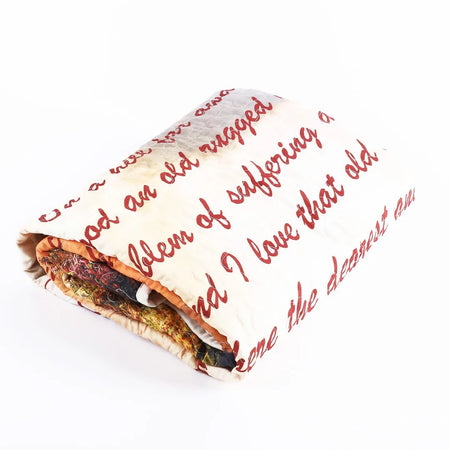 On a hill far awa
ood an old rugged
blem of suffering a
nd I love that old
ere the dearest and